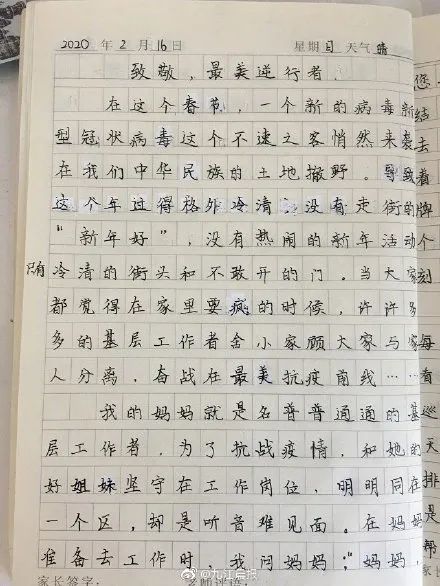 2020 年 2 月 16 日 星期 日 天气 晴
致敬，最美逆行者
在这个春节，一个新的病毒新
型冠状病毒这个不速之客悄然来袭
在我们中华民族的土地撒野。导致
这个年过得格外冷清，没有走街的
“新年好”，没有热闹的新年活动
只有冷清的街头和不敢开的门。当大家
都觉得在家里要疯的时候，许许多
多的基层工作者舍小家顾大家与家
人分离，奋战在最美抗疫前线……
我的妈妈就是名普普通通的基
层工作者，为了抗战疫情，和她的
好姐妹坚守在工作岗位，明明同在
一个区，却是听音难见面。在妈妈
准备去工作时，我问妈妈：“妈妈，
家长签字：
您
结
去
着
牌
个
刻
每
看
巡
天
排
是
帮
@九江晨报